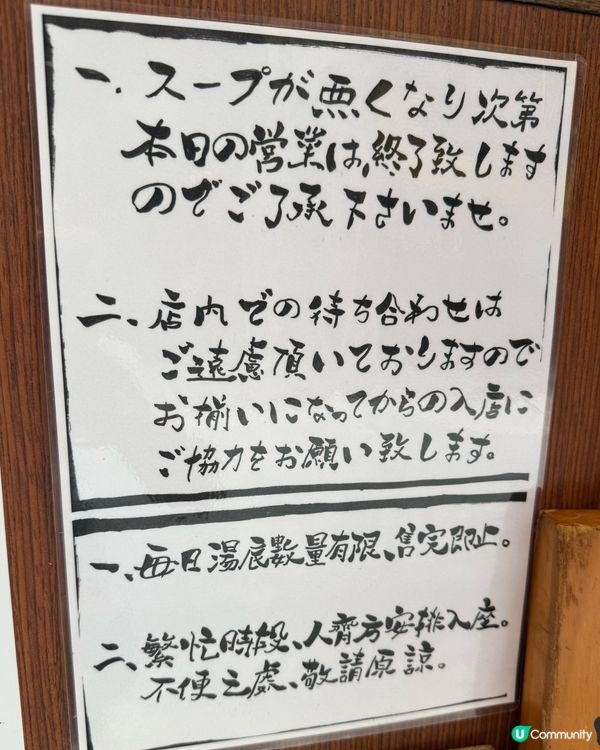 一、スープが悪くなり次第
本日の営業は、終了致します
のでご了承下さいませ。
二、店内での待ち合わせは
ご遠慮頂いておりますので
お揃いになってからの入店に
ご協力をお願い致します。
一、毎日湯底數量有限、售完即止。
二、繁忙時段、人齊方安排入座。
不便之處、敬請原諒。
U Community